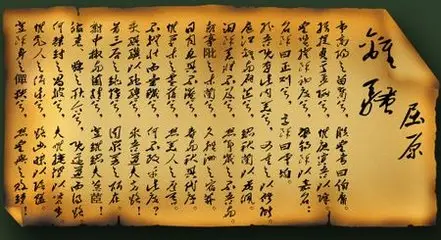 離騷
屈原
帝高陽之苗裔兮,朕皇考曰伯庸。
攝提貞于孟陬兮,惟庚寅吾以降。
皇覽揆余初度兮,肇錫余以嘉名:
名余曰正則兮,字余曰靈均。
紛吾既有此內美兮,又重之以修能。
扈江離與辟芷兮,紉秋蘭以為佩。
汩余若將不及兮,恐年歲之不吾與。
朝搴阰之木蘭兮,夕攬洲之宿莽。
日月忽其不淹兮,春與秋其代序。
惟草木之零落兮,恐美人之遲暮。
不撫壯而棄穢兮,何不改乎此度?
乘騏驥以馳騁兮,來吾道夫先路!
昔三后之純粹兮,固眾芳之所在。
雜申椒與菌桂兮,豈維紉夫蕙茝!
彼堯舜之耿介兮,既遵道而得路。
何桀紂之猖披兮,夫唯捷徑以窘步。
惟黨人之偷樂兮,路幽昧以險隘。
豈余身之憚殃兮,恐皇輿之敗績!